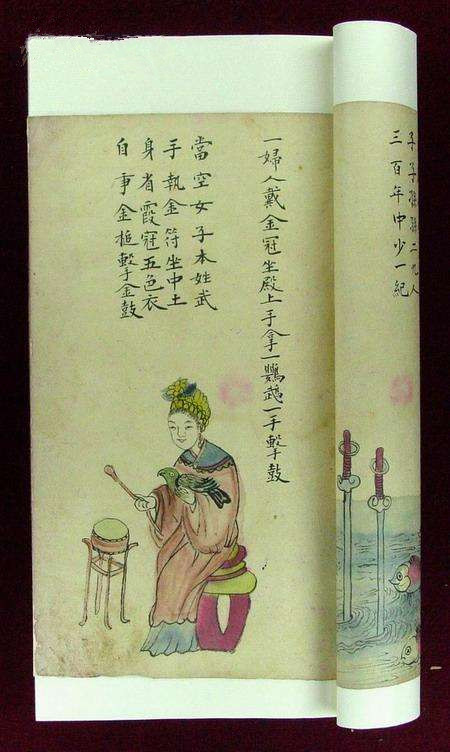 子子孫孫二九人
三百年中少一紀
一婦人戴金冠坐殿上手拿一鸚鵡一手擊鼓
當空女子本姓武
手執金符坐中土
身省霞冠五色衣
自事金槌擊金鼓